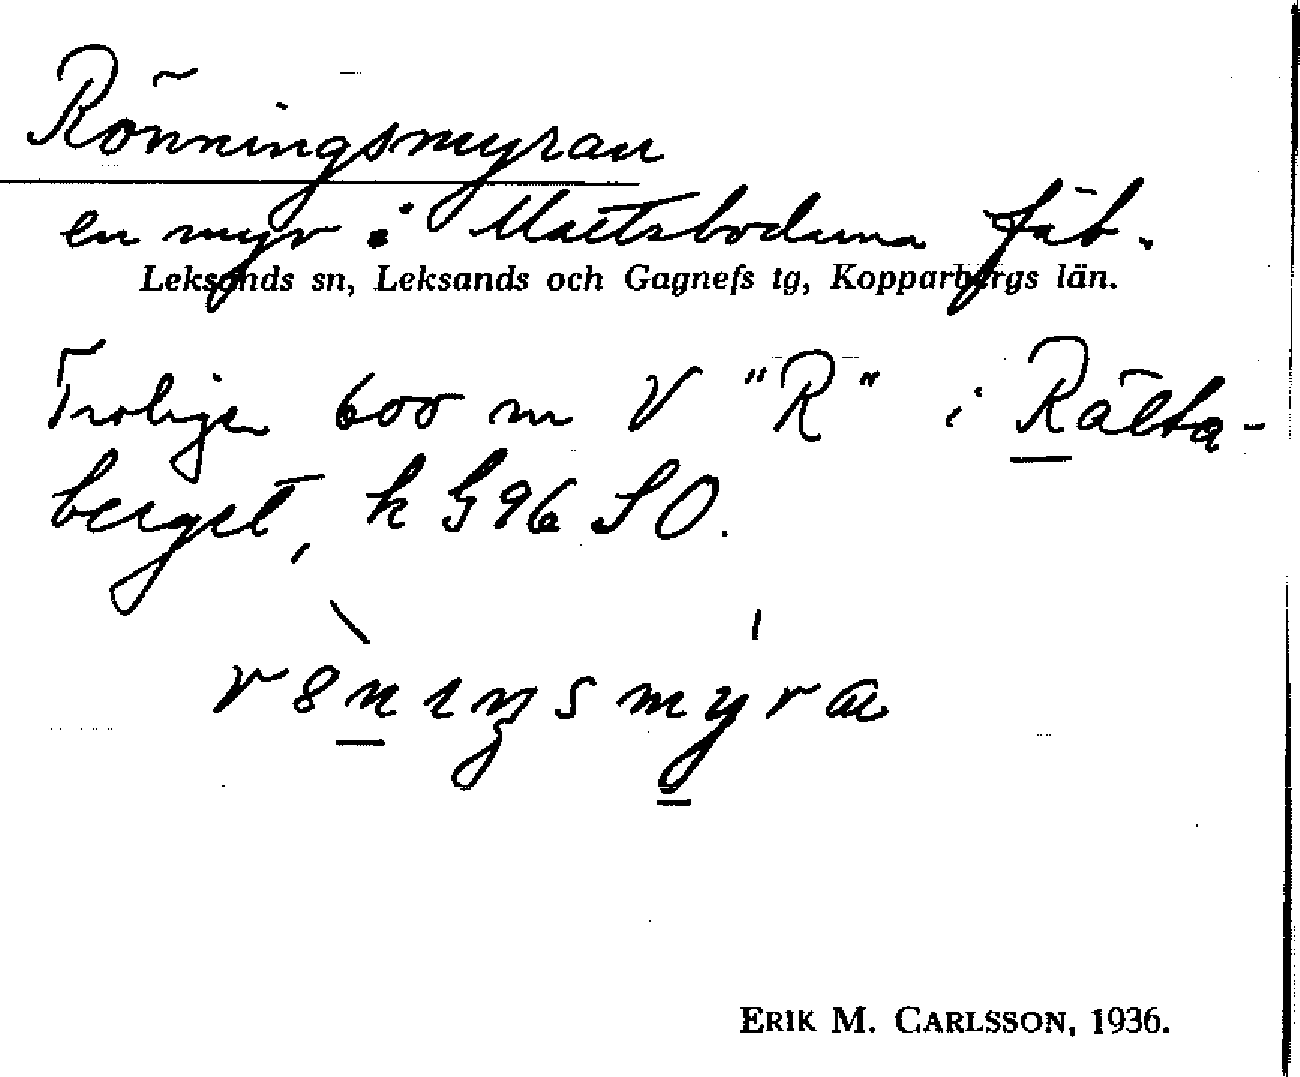 Rönningsmyran
en myr i Mattsbodarna fäb.
Leksands sn, Leksands och Gagnefs tg, Kopparbergs län.
Troligen 600 m V "R" i Rälta-
berget, k G 96 SO.
ERIK M. CARLSSON, 1936.